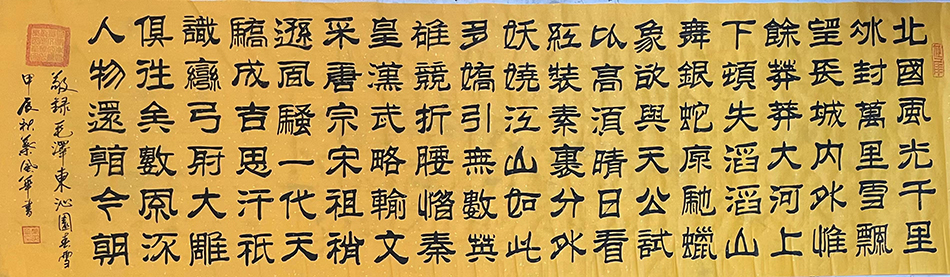 北國風光千里
冰封萬里雪飄
望長城内外惟
餘莽莽大河上
下頓失滔滔山
舞銀蛇原馳蠟
象欲與天公試
比高須晴日看
紅裝素裹分外
妖嬈江山如此
多嬌引無數英
雄競折腰惜秦
皇漢武略輸文
采唐宗宋祖稍
遜風騷一代天
驕成吉思汗祇
識彎弓射大雕
俱往矣數風流
人物還看今朝
敬録毛澤東沁園春雪
甲辰秋蔡書